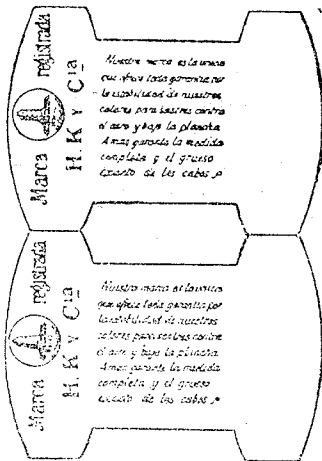 Marca registrada
H. K y Cia
Nuestra marca es la unica
que ofrece toda garantia por
la estabilidad de nuestros
colores para sastres contra
el aire y bajo la plancha
Amas garante la medida
completa y el grueso
exacto de los cabos
Marca registrada
H. K y Cia
Nuestra marca es la unica
que ofrece toda garantia por
la estabilidad de nuestros
colores para sastres contra
el aire y bajo la plancha
Amas garante la medida
completa y el grueso
exacto de los cabos